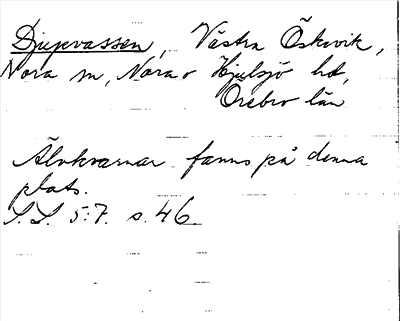 Djupvassen, Västra Öskevik,
Nora sn, Nora o Hjulsjö hd,
Örebro län
Älvkvarnar fanns på denna
plats.
S.S. 5:7. s. 46.